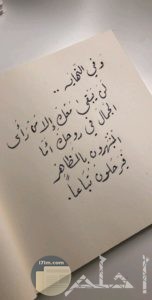 وفي النهاية ..
لن يبقى معك إلا من رأى
الجمال في روحك أما
المنبهرون بالمظاهر
فيرحلون تباعاً.
احلم
iTim.com